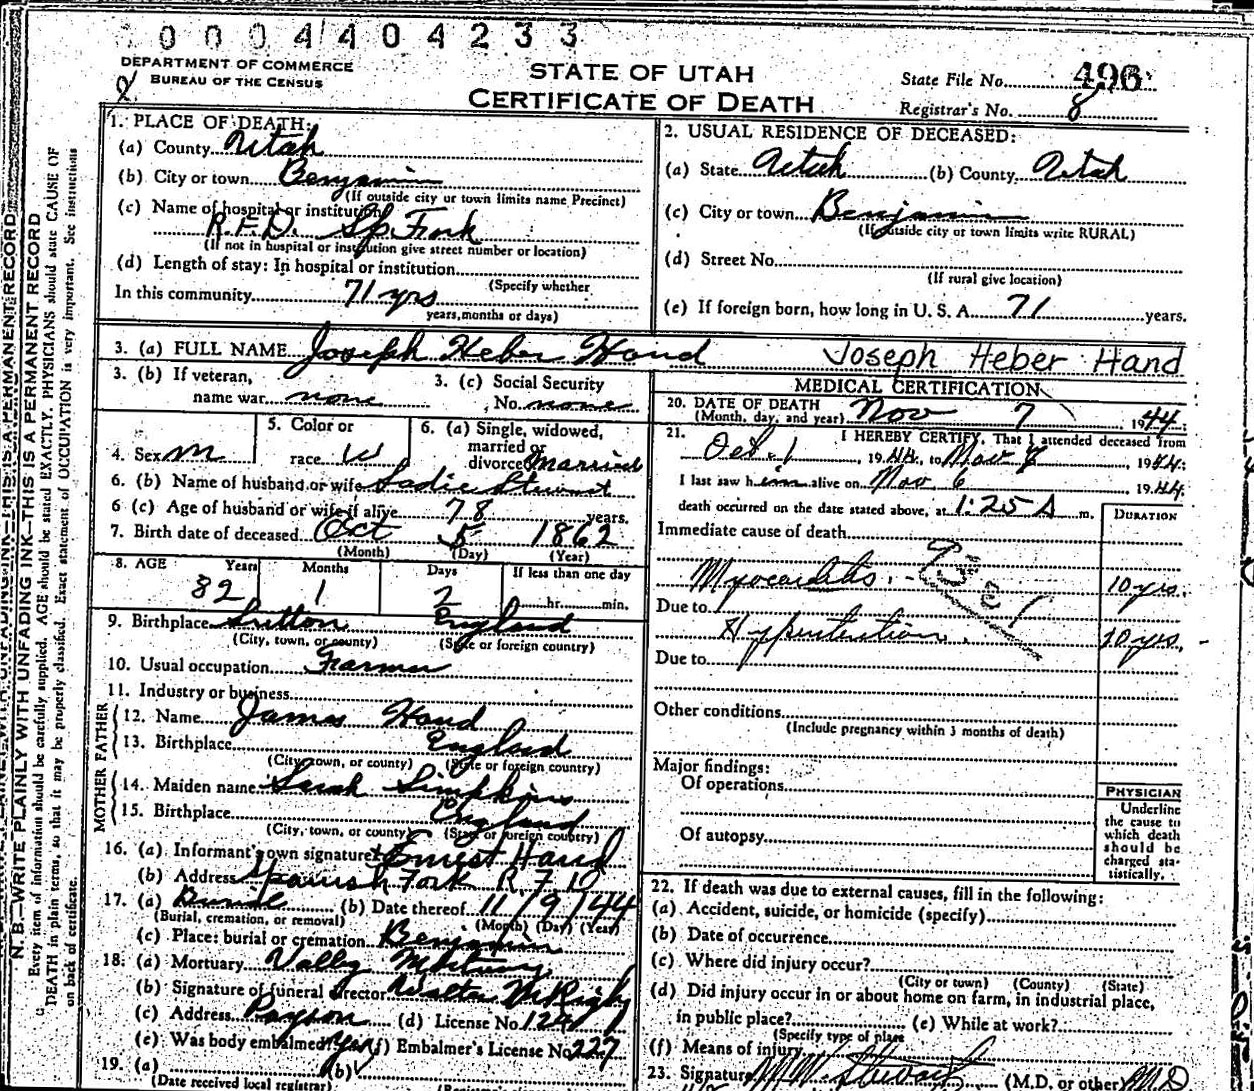 0004404233
DEPARTMENT OF COMMERCE
BUREAU OF THE CENSUS
STATE OF UTAH
CERTIFICATE OF DEATH
State File No. 496
Registrar's No. 8
1. PLACE OF DEATH:
(a) County Utah
(b) City or town Benjamin
(If outside city or town limits name Precinct)
(c) Name of hospital or institution
R.F.D. Sp. Fork
(If not in hospital or institution give street number or location)
(d) Length of stay: In hospital or institution
(Specify whether
In this community 71 yrs
years, months or days)
2. USUAL RESIDENCE OF DECEASED:
(a) State Utah (b) County Utah
(c) City or town Benjamin
(If outside city or town limits write RURAL)
(d) Street No.
(If rural give location)
(e) If foreign born, how long in U. S. A. 71 years.
3. (a) FULL NAME Joseph Heber Hand Joseph Heber Hand
3. (b) If veteran, name war none
3. (c) Social Security No. none
4. Sex m
5. Color or race W
6. (a) Single, widowed, married or divorced Married
6. (b) Name of husband or wife Sadie Stewart
6 (c) Age of husband or wife if alive 78 years.
7. Birth date of deceased Oct 5 1862
(Month) (Day) (Year)
8. AGE Years Months Days If less than one day
82 1 2 hr. min.
9. Birthplace Sutton England
(City, town, or county) (State or foreign country)
10. Usual occupation Farmer
11. Industry or business
FATHER
12. Name James Hand
13. Birthplace England
(City, town, or county) (State or foreign country)
MOTHER
14. Maiden name Sarah Simpkins
15. Birthplace England
(City, town, or county) (State or foreign country)
16. (a) Informant's own signature Ernest Hand
(b) Address Spanish Fork R F D
17. (a) Burial (b) Date thereof 11/9/44
(Burial, cremation, or removal) (Month) (Day) (Year)
(c) Place: burial or cremation Benjamin
18. (a) Mortuary Valley Mortuary
(b) Signature of funeral director Walter M Rigby
(c) Address Payson (d) License No.
(e) Was body embalmed yes (f) Embalmer's License No. 227
19. (a) (b)
(Date received local registrar)
MEDICAL CERTIFICATION
20. DATE OF DEATH
(Month, day, and year) Nov 7 1944
21. I HEREBY CERTIFY, That I attended deceased from
Oct. 1, 1944, to Nov 7, 1944
I last saw him alive on Nov 6 1944
death occurred on the date stated above, at 1:25 A m.
DURATION
Immediate cause of death
Myocarditis 10 yrs.
Due to
Hypertention 10 yrs.
Due to
Other conditions
(Include pregnancy within 3 months of death)
Major findings:
Of operations
Of autopsy
PHYSICIAN
Underline
the cause to
which death
should be
charged sta-
tistically.
22. If death was due to external causes, fill in the following:
(a) Accident, suicide, or homicide (specify)
(b) Date of occurrence
(c) Where did injury occur?
(City or town) (County) (State)
(d) Did injury occur in or about home on farm, in industrial place,
in public place? (e) While at work?
(Specify type of place
(f) Means of injury
23. Signature Stewart (M.D. or other) M.D
N. B.—WRITE PLAINLY WITH UNFADING INK—THIS IS A PERMANENT RECORD
Every item of information should be carefully supplied. AGE should be stated EXACTLY. PHYSICIANS should state CAUSE OF
DEATH in plain terms, so that it may be properly classified. Exact statement of OCCUPATION is very important. See instructions
on back of certificate.